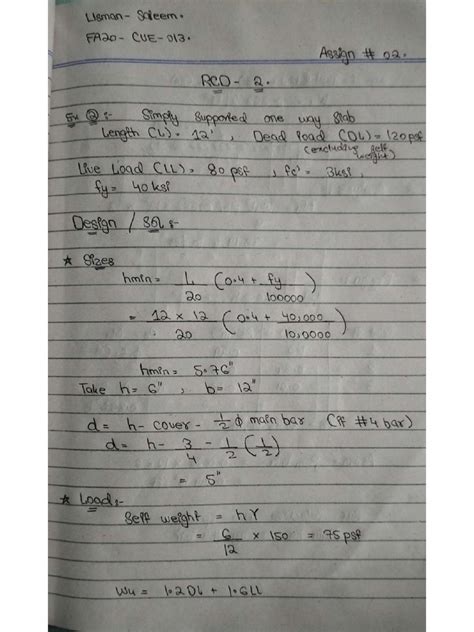 Usman - Saleem.
FA20 - CUE - 013.
Assign # 02.
RCD - 2.
Ex ②:- Simply supported one way slab
Length (L) = 12', Dead load (DL) = 120 psf
(excluding self weight)
Live Load (LL) = 80 psf, fc' = 3ksi,
fy = 40 ksi
Design / Sol:-
* Sizes
hmin = L/20 (0.4 + fy/100000)
= 12 × 12/20 (0.4 + 40,000/10,0000)
hmin = 5.76"
Take h = 6", b = 12"
d = h - cover - 1/2 φ main bar (if #4 bar)
d = h - 3/4 - 1/2 (1/2)
= 5"
* Load:-
Self weight = hγ
= 6/12 × 150 = 75 psf
Wu = 1.2DL + 1.6LL